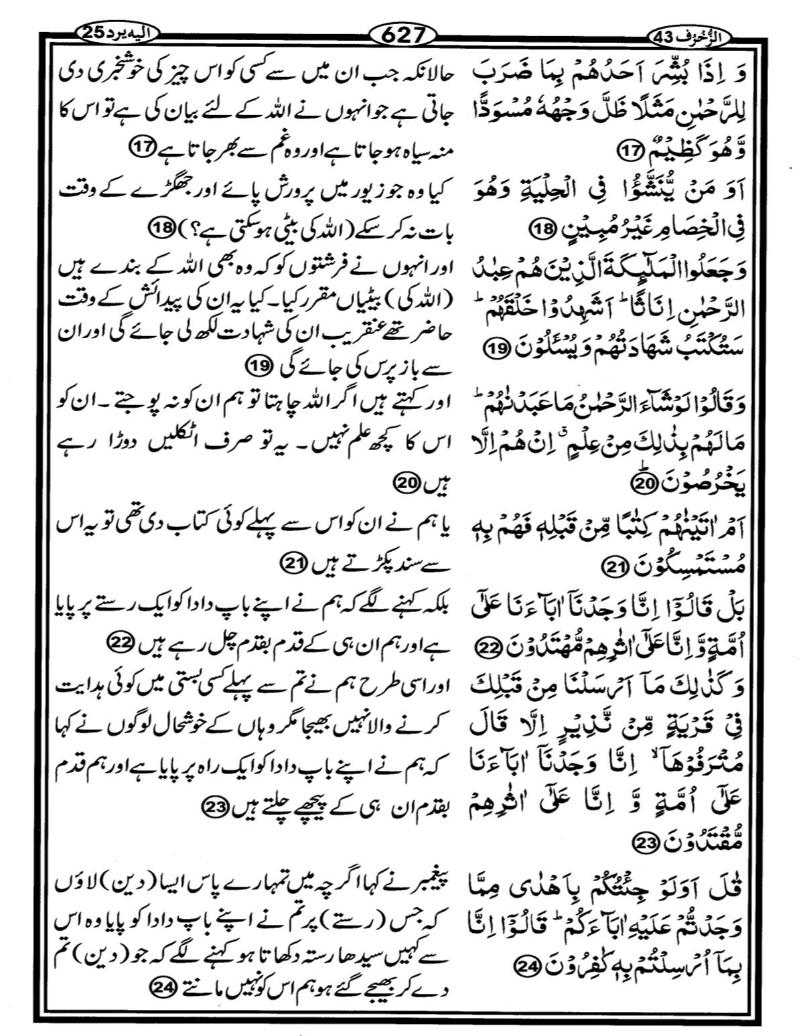 الزُّخۡرُف 43
627
اليه يرد 25
وَ اِذَا بُشِّرَ اَحَدُهُمۡ بِمَا ضَرَبَ
لِلرَّحۡمٰنِ مَثَلًا ظَلَّ وَجۡهُهٗ مُسۡوَدًّا
وَّهُوَ كَظِيۡمٌ ⑰
حالانکہ جب ان میں سے کسی کو اس چیز کی خوشخبری دی
جاتی ہے جو انہوں نے اللہ کے لئے بیان کی ہے تو اس کا
منہ سیاہ ہو جاتا ہے اور وہ غم سے بھر جاتا ہے ⑰
اَوَ مَنۡ يُّنَشَّؤُا فِى الۡحِلۡيَةِ وَهُوَ
فِى الۡخِصَامِ غَيۡرُ مُبِيۡنٍ ⑱
کیا وہ جو زیور میں پرورش پائے اور جھگڑے کے وقت
بات نہ کر سکے (اللہ کی بیٹی ہو سکتی ہے؟) ⑱
وَ جَعَلُوا الۡمَلٰٓٮِٕكَةَ الَّذِيۡنَ هُمۡ عِبٰدُ
الرَّحۡمٰنِ اِنَاثًا‌ ؕ اَشَهِدُوۡا خَلۡقَهُمۡ‌ ؕ
سَتُكۡتَبُ شَهَادَتُهُمۡ وَيُسۡـَٔلُوۡنَ ⑲
اور انہوں نے فرشتوں کو کہ وہ بھی اللہ کے بندے ہیں
(اللہ کی) بیٹیاں مقرر کیا۔ کیا یہ ان کی پیدائش کے وقت
حاضر تھے عنقریب ان کی شہادت لکھ لی جائے گی اور ان
سے باز پرس کی جائے گی ⑲
وَقَالُوۡا لَوۡ شَآءَ الرَّحۡمٰنُ مَا عَبَدۡنٰهُمۡ‌ ؕ
مَا لَهُمۡ بِذٰلِكَ مِنۡ عِلۡمٍ‌ ۚ اِنۡ هُمۡ اِلَّا
يَخۡرُصُوۡنَ ؕ ⑳
اور کہتے ہیں اگر اللہ چاہتا تو ہم ان کو نہ پوجتے۔ ان کو
اس کا کچھ علم نہیں۔ یہ تو صرف اٹکلیں دوڑا رہے
ہیں ⑳
اَمۡ اٰتَيۡنٰهُمۡ كِتٰبًا مِّنۡ قَبۡلِهٖ فَهُمۡ بِهٖ
مُسۡتَمۡسِكُوۡنَ ㉑
یا ہم نے ان کو اس سے پہلے کوئی کتاب دی تھی تو یہ اس
سے سند پکڑتے ہیں ㉑
بَلۡ قَالُوۡۤا اِنَّا وَجَدۡنَاۤ اٰبَآءَنَا عَلٰٓى
اُمَّةٍ وَّاِنَّا عَلٰٓى اٰثٰرِهِمۡ مُّهۡتَدُوۡنَ ㉒
بلکہ کہنے لگے کہ ہم نے اپنے باپ دادا کو ایک رستے پر پایا
ہے اور ہم ان ہی کے قدم بقدم چل رہے ہیں ㉒
وَكَذٰلِكَ مَاۤ اَرۡسَلۡنَا مِنۡ قَبۡلِكَ
فِىۡ قَرۡيَةٍ مِّنۡ نَّذِيۡرٍ اِلَّا قَالَ
مُتۡرَفُوۡهَاۤ ۙ اِنَّا وَجَدۡنَاۤ اٰبَآءَنَا
عَلٰٓى اُمَّةٍ وَّ اِنَّا عَلٰٓى اٰثٰرِهِمۡ
مُّقۡتَدُوۡنَ ㉓
اور اسی طرح ہم نے تم سے پہلے کسی بستی میں کوئی ہدایت
کرنے والا نہیں بھیجا مگر وہاں کے خوشحال لوگوں نے کہا
کہ ہم نے اپنے باپ دادا کو ایک راہ پر پایا ہے اور ہم قدم
بقدم ان ہی کے پیچھے چلتے ہیں ㉓
قٰلَ اَوَلَوۡ جِئۡتُكُمۡ بِاَهۡدٰى مِمَّا
وَجَدْتُّمۡ عَلَيۡهِ اٰبَآءَكُمۡ‌ ؕ قَالُوۡۤا اِنَّا
بِمَاۤ اُرۡسِلۡتُمۡ بِهٖ كٰفِرُوۡنَ ㉔
پیغمبر نے کہا اگرچہ میں تمہارے پاس ایسا (دین) لاؤں
کہ جس (رستے) پر تم نے اپنے باپ دادا کو پایا وہ اس
سے کہیں سیدھا رستہ دکھاتا ہو کہنے لگے کہ جو (دین) تم
دے کر بھیجے گئے ہو ہم اس کو نہیں مانتے ㉔